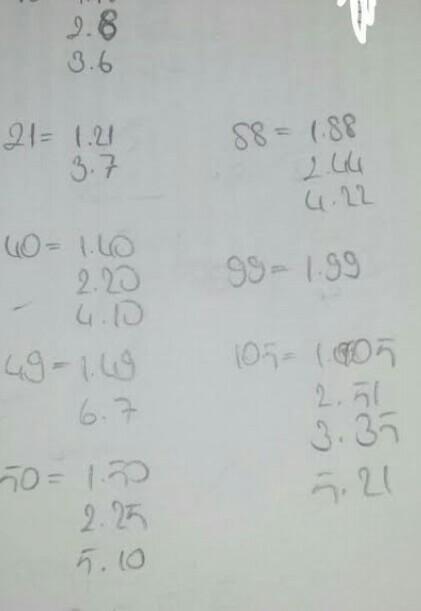 2.8
3.6
21 = 1.21
3.7
40 = 1.40
2.20
4.10
49 = 1.49
6.7
50 = 1.50
2.25
5.10
88 = 1.88
2.44
4.22
99 = 1.99
105 = 1.105
2.51
3.35
5.21